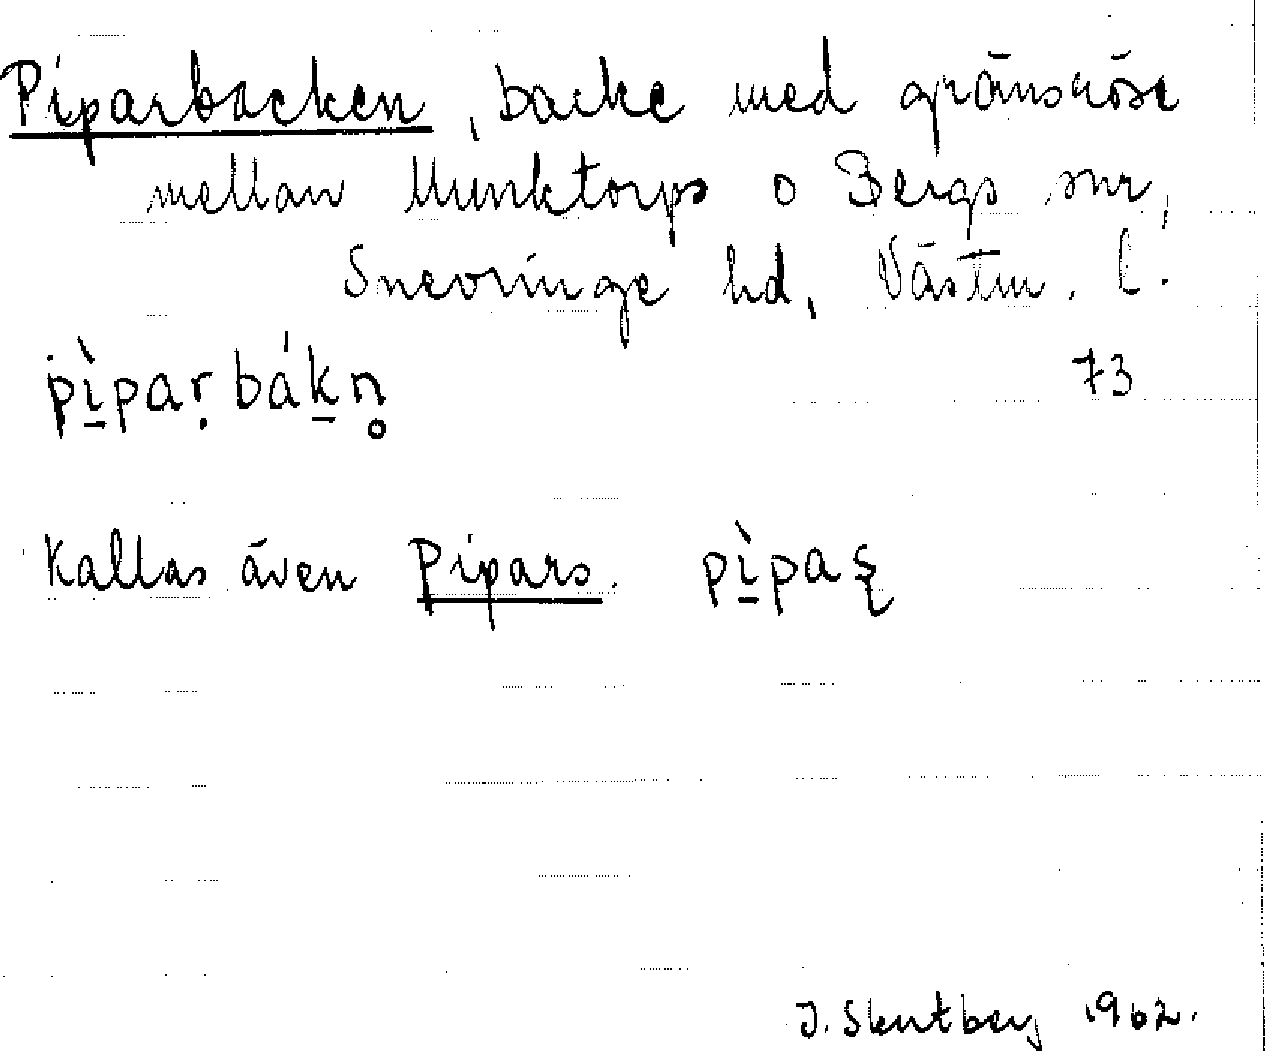 Piparbacken, backe med gränsröse
mellan Munktorps o Bergs snr,
Snevringe hd, Västm. l.
pìpaṛbák̠n̥
73
Kallas även Pipars. pìpaʂ
J. Skutberg 1962.